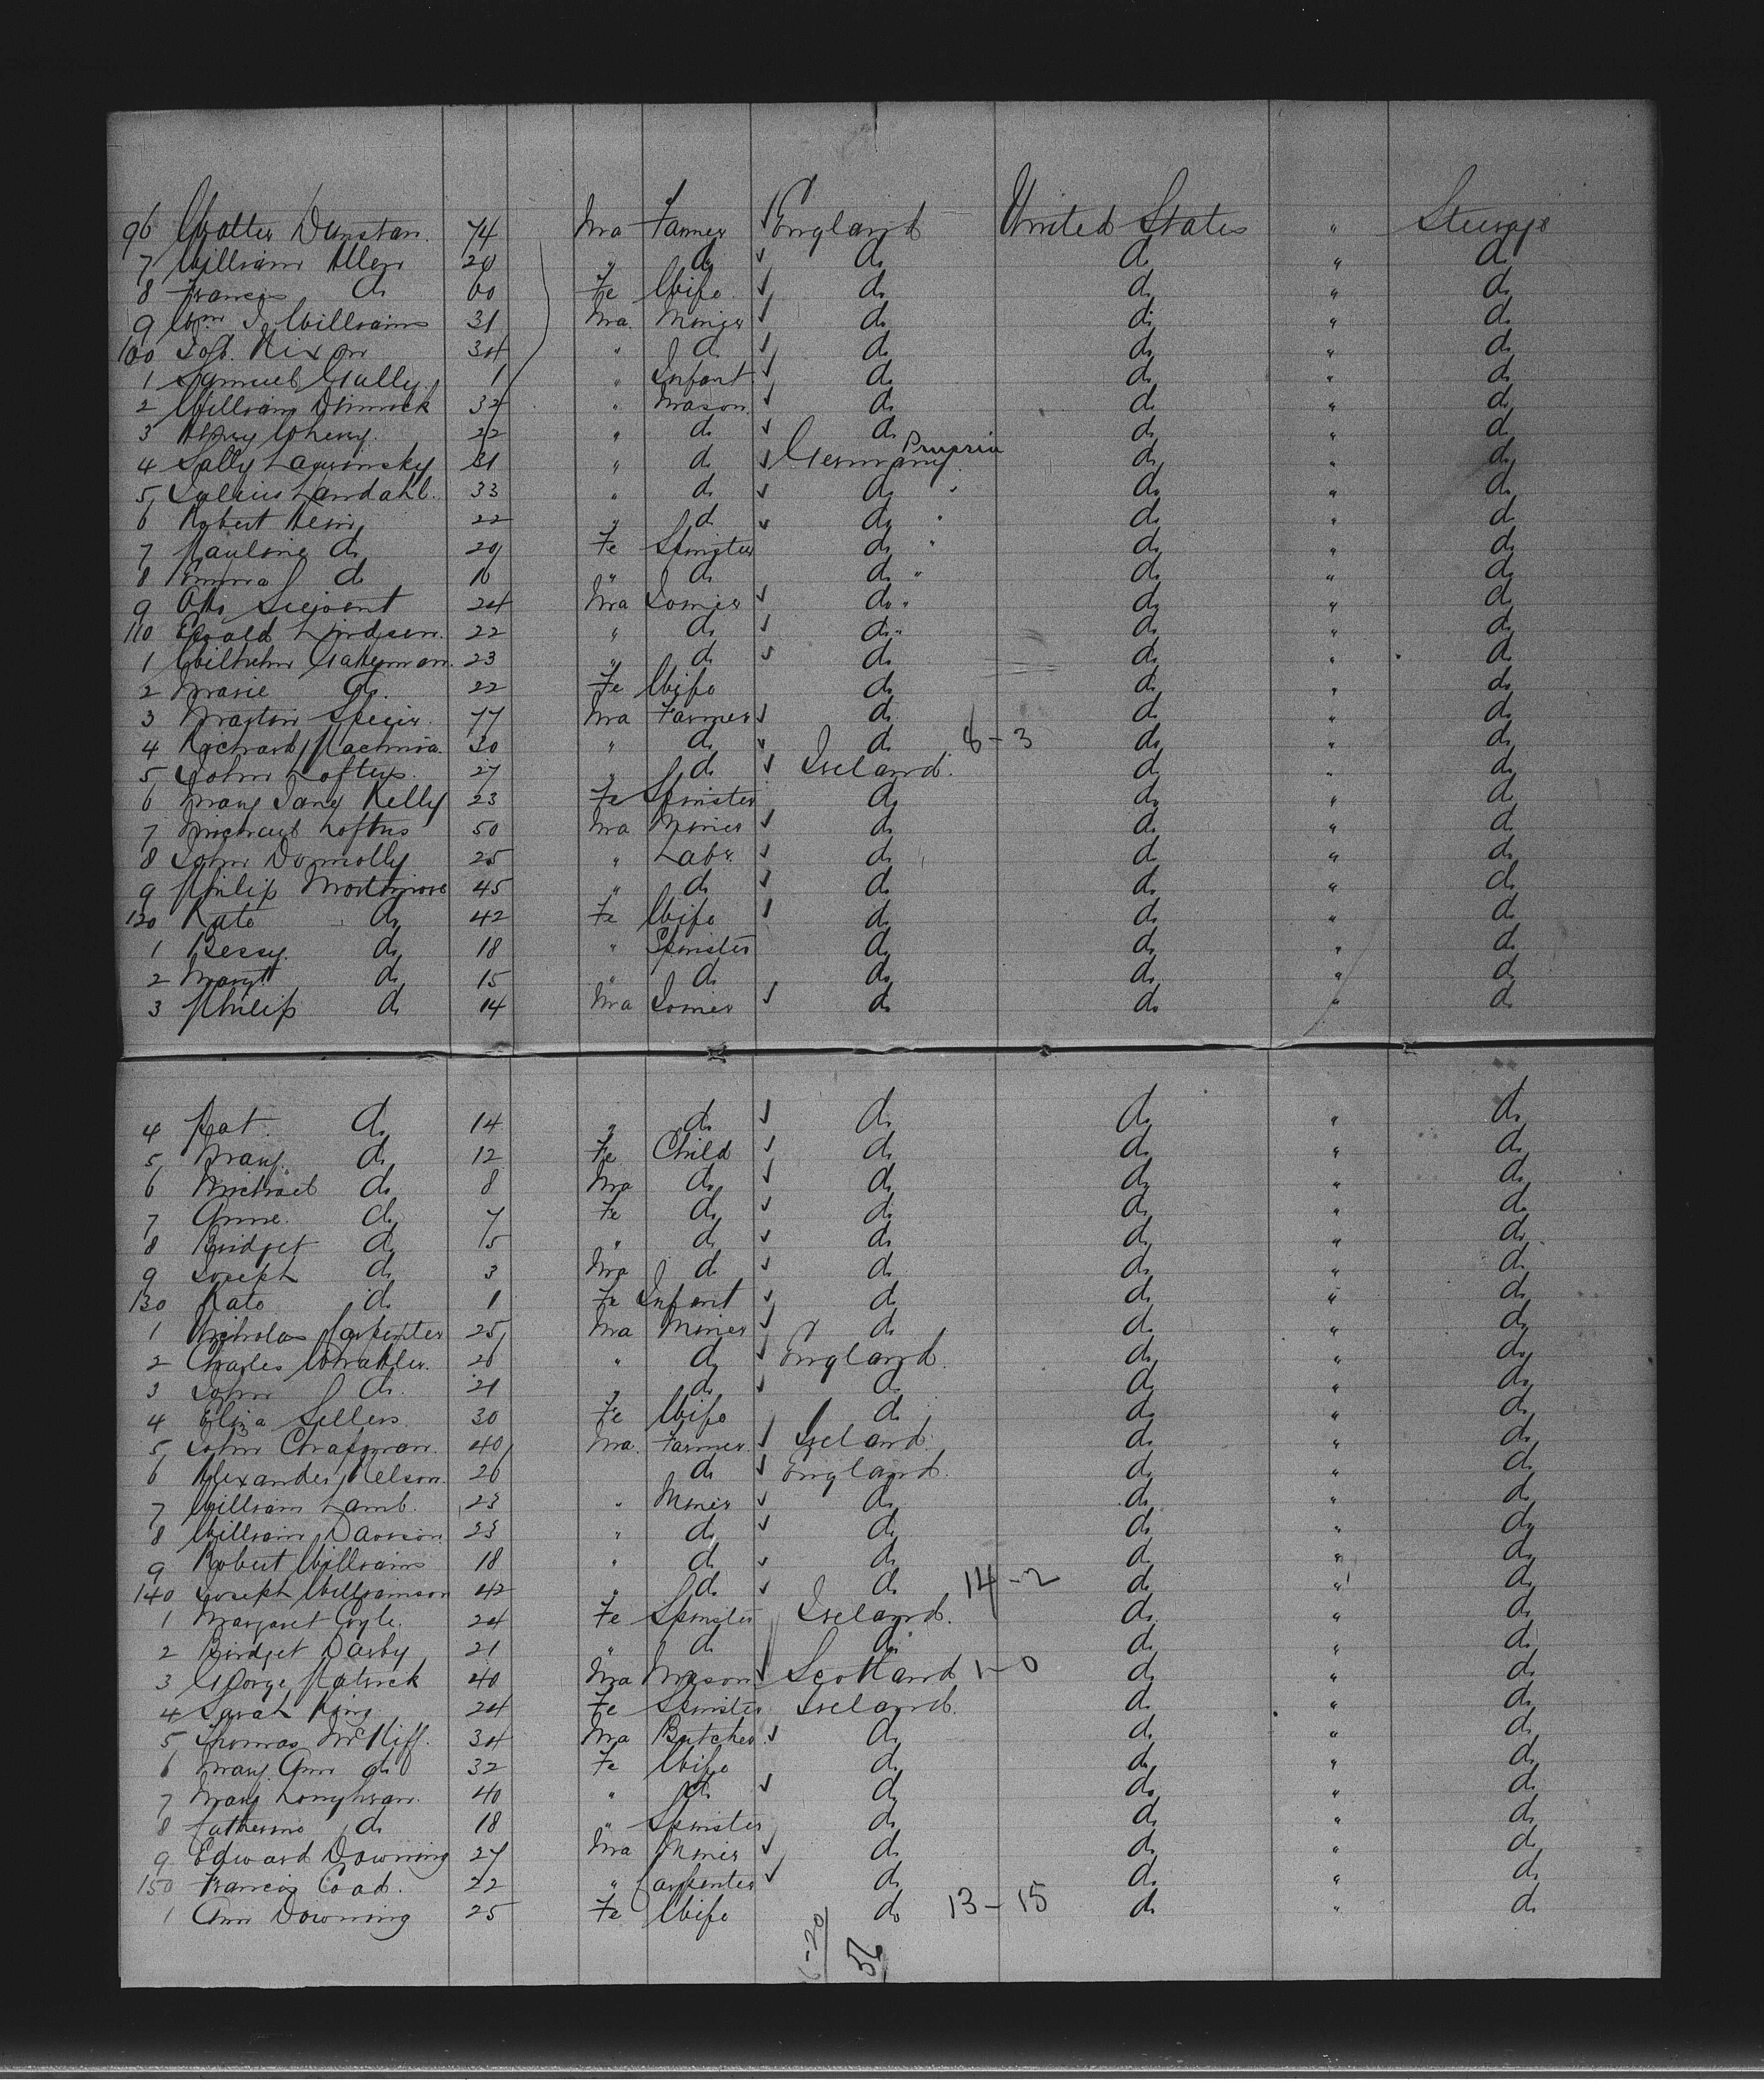 96 Walter Dunstan. 74 Ma Farmer England United States " Steerage
7 William Allen 20 " do do do " do
8 Francis do 60 Fe Wife do do " do
9 Wm J Williams 31 Ma. Miner do do " do
100 Jos. Nixon 34 " do do do " do
1 Samuel Gully 1 " Infant do do " do
2 William Dimmock 32 " Mason do do " do
3 Henry Wherry. 22 " do do do " do
4 Sally 31 " do Germany Prussia do " do
5 Julius Landahl. 33 " do do " do " do
6 Robert 22 " do do " do " do
7 Pauline do 20 Fe Spinster do " do " do
8 Emma do 16 " do do " do " do
9 Otto 24 Ma Joiner do " do " do
110 Ewald Lindsen. 22 " do do " do " do
1 Wilhelm 23 " do do do " do
2 Marie do. 22 Fe Wife do do " do
3 Martin 77 Ma Farmer do do " do
4 Richard 30 " do do 6-3 do " do
5 John Loftus. 27 " do Ireland. do " do
6 Mary Jane Kelly 23 Fe Spinster do do " do
7 Michael Loftus 50 Ma Miner do do " do
8 John Donnolly 25 " Labr. do do " do
9 Philip Mortimore 45 " do do do " do
120 Kate do 42 Fe Wife do do " do
1 Bessy. do 18 " Spinster do do " do
2 Margt do 15 " do do do " do
3 Philip do 14 Ma Joiner do do " do
4 Pat. do 14 " do do do " do
5 Mary. do 12 Fe Child do do " do
6 Michael do 8 Ma do do do " do
7 Anne. do 7 Fe do do do " do
8 Bridget do 5 " do do do " do
9 Joseph do 3 Ma do do do " do
130 Kate do 1 Fe Infant do do " do
1 Nicholas Carpenter 25 Ma Miner do do " do
2 Charles 26 " do England. do " do
3 John do. 21 " do do do " do
4 Eliza Sellers. 30 Fe Wife do do " do
5 John Chapman. 40 Ma. Farmer. Ireland. do " do
6 Alexander Nelson. 26 do England. do " do
7 William Lamb. 23 " Miner do do " do
8 William Davison 23 " do do do " do
9 Robert Williams 18 " do do do " do
140 Joseph Williamson 42 " do do 14-2 do " do
1 Margaret Coyle. 24 Fe Spinster Ireland. do " do
2 Bridget Darby 21 " do do do " do
3 George Patrick 40 Ma Mason Scotland 1-0 do " do
4 Sarah King 24 Fe Spinster Ireland. do " do
5 Thomas 34 Ma Butcher do do " do
6 Mary Ann do 32 Fe Wife do do " do
7 Mary Loughran. 40 " do do do " do
8 Catherine do 18 " Spinster do do " do
9 Edward Downing 27 Ma Miner do do " do
150 Francis Coad. 22 " Carpenter do do " do
1 Ann Downing 25 Fe Wife do 13-15 do " do
56